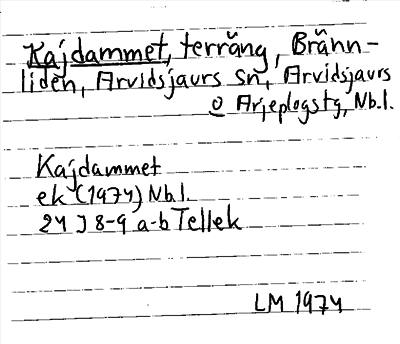 Kajdammet, terräng, Bränn-
liden, Arvidsjaurs sn, Arvidsjaurs
o Arjeplogs tg, Nb.l.
Kajdammet
ek (1974) Nb.l.
24 J 8-9 a-b Tellek
LM 1974